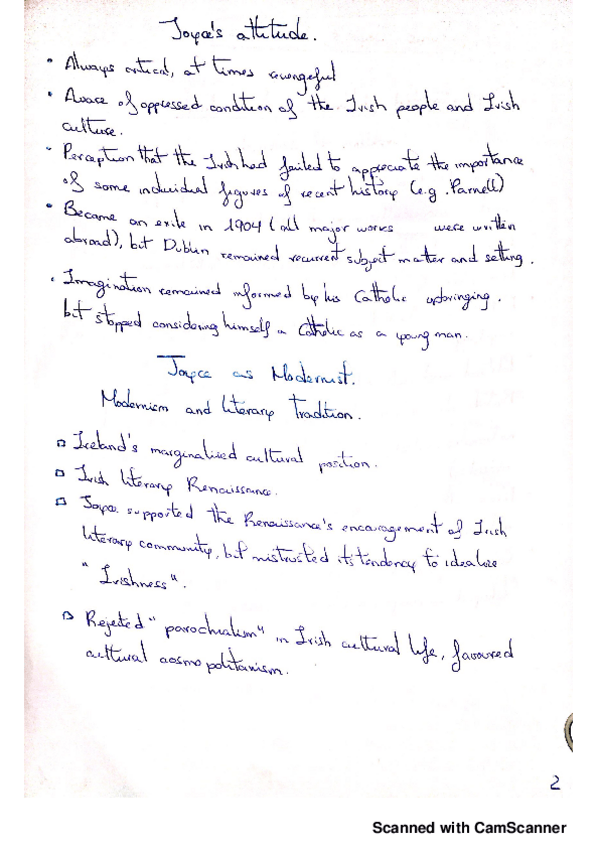 Joyce's attitude.
• Always critical, at times revengeful
• Aware of oppressed condition of the Irish people and Irish
culture.
• Perception that the Irish had failed to appreciate the importance
of some individual figures of recent history (e.g. Parnell)
• Became an exile in 1904 (all major works were written
abroad), but Dublin remained recurrent subject matter and setting.
• Imagination remained informed by his Catholic upbringing.
but stopped considering himself a Catholic as a young man.
Joyce as Modernist.
Modernism and literary Tradition.
▫ Ireland's marginalised cultural position.
▫ Irish literary Renaissance.
▫ Joyce supported the Renaissance's encouragement of Irish
literary community, but mistrusted its tendency to idealise
"Irishness".
▫ Rejected "parochialism" in Irish cultural life, favoured
cultural cosmopolitanism.
2
Scanned with CamScanner